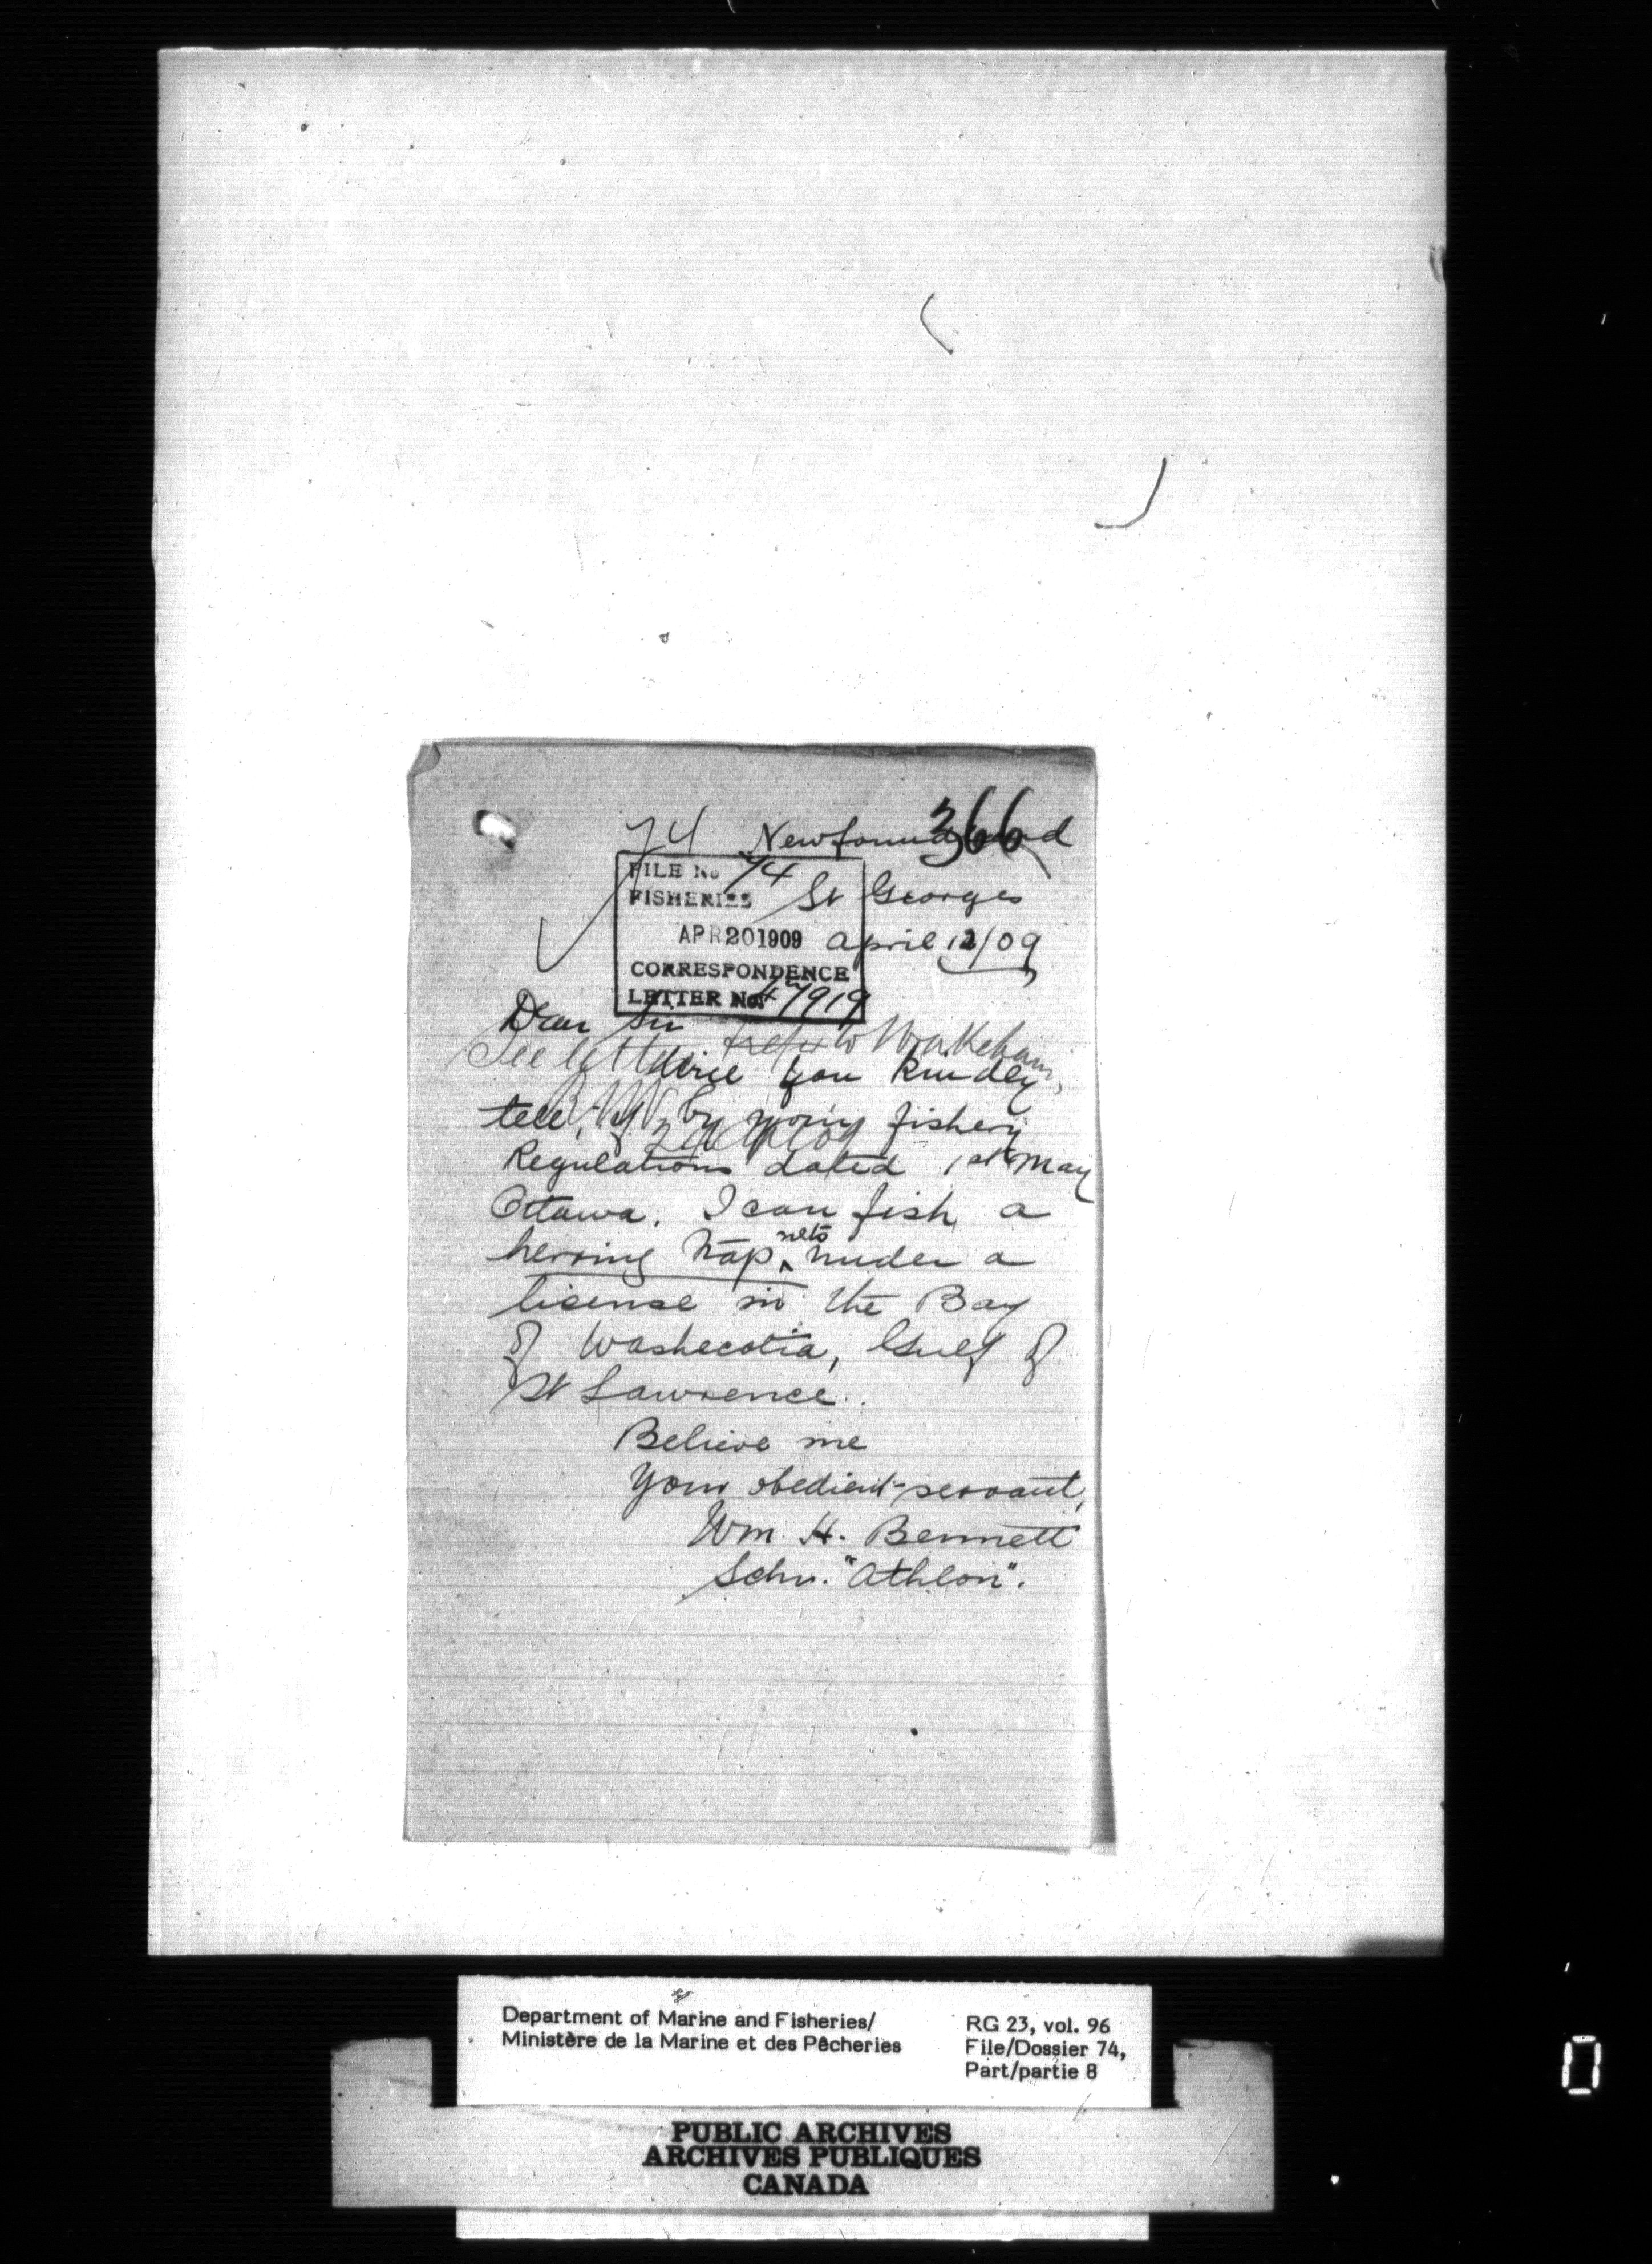 366
74 Newfoundland
FILE No 74
FISHERIES
St Georges
APR 20 1909
April 12/09
CORRESPONDENCE
LETTER No. 47919
Dear Sir
refer to Wakeham,
See letter
Will you kindley
tell, if, by your fishery
Regulations dated 1st May
Ottawa. I can fish a
herring trap nets under a
license in the Bay
of Washecotia, Gulf of
St Lawrence.
Believe me
Your obedient servant,
Wm H. Bennett
Schr. "Athlon".
Department of Marine and Fisheries/
Ministère de la Marine et des Pêcheries
RG 23, vol. 96
File/Dossier 74,
Part/partie 8
PUBLIC ARCHIVES
ARCHIVES PUBLIQUES
CANADA
0